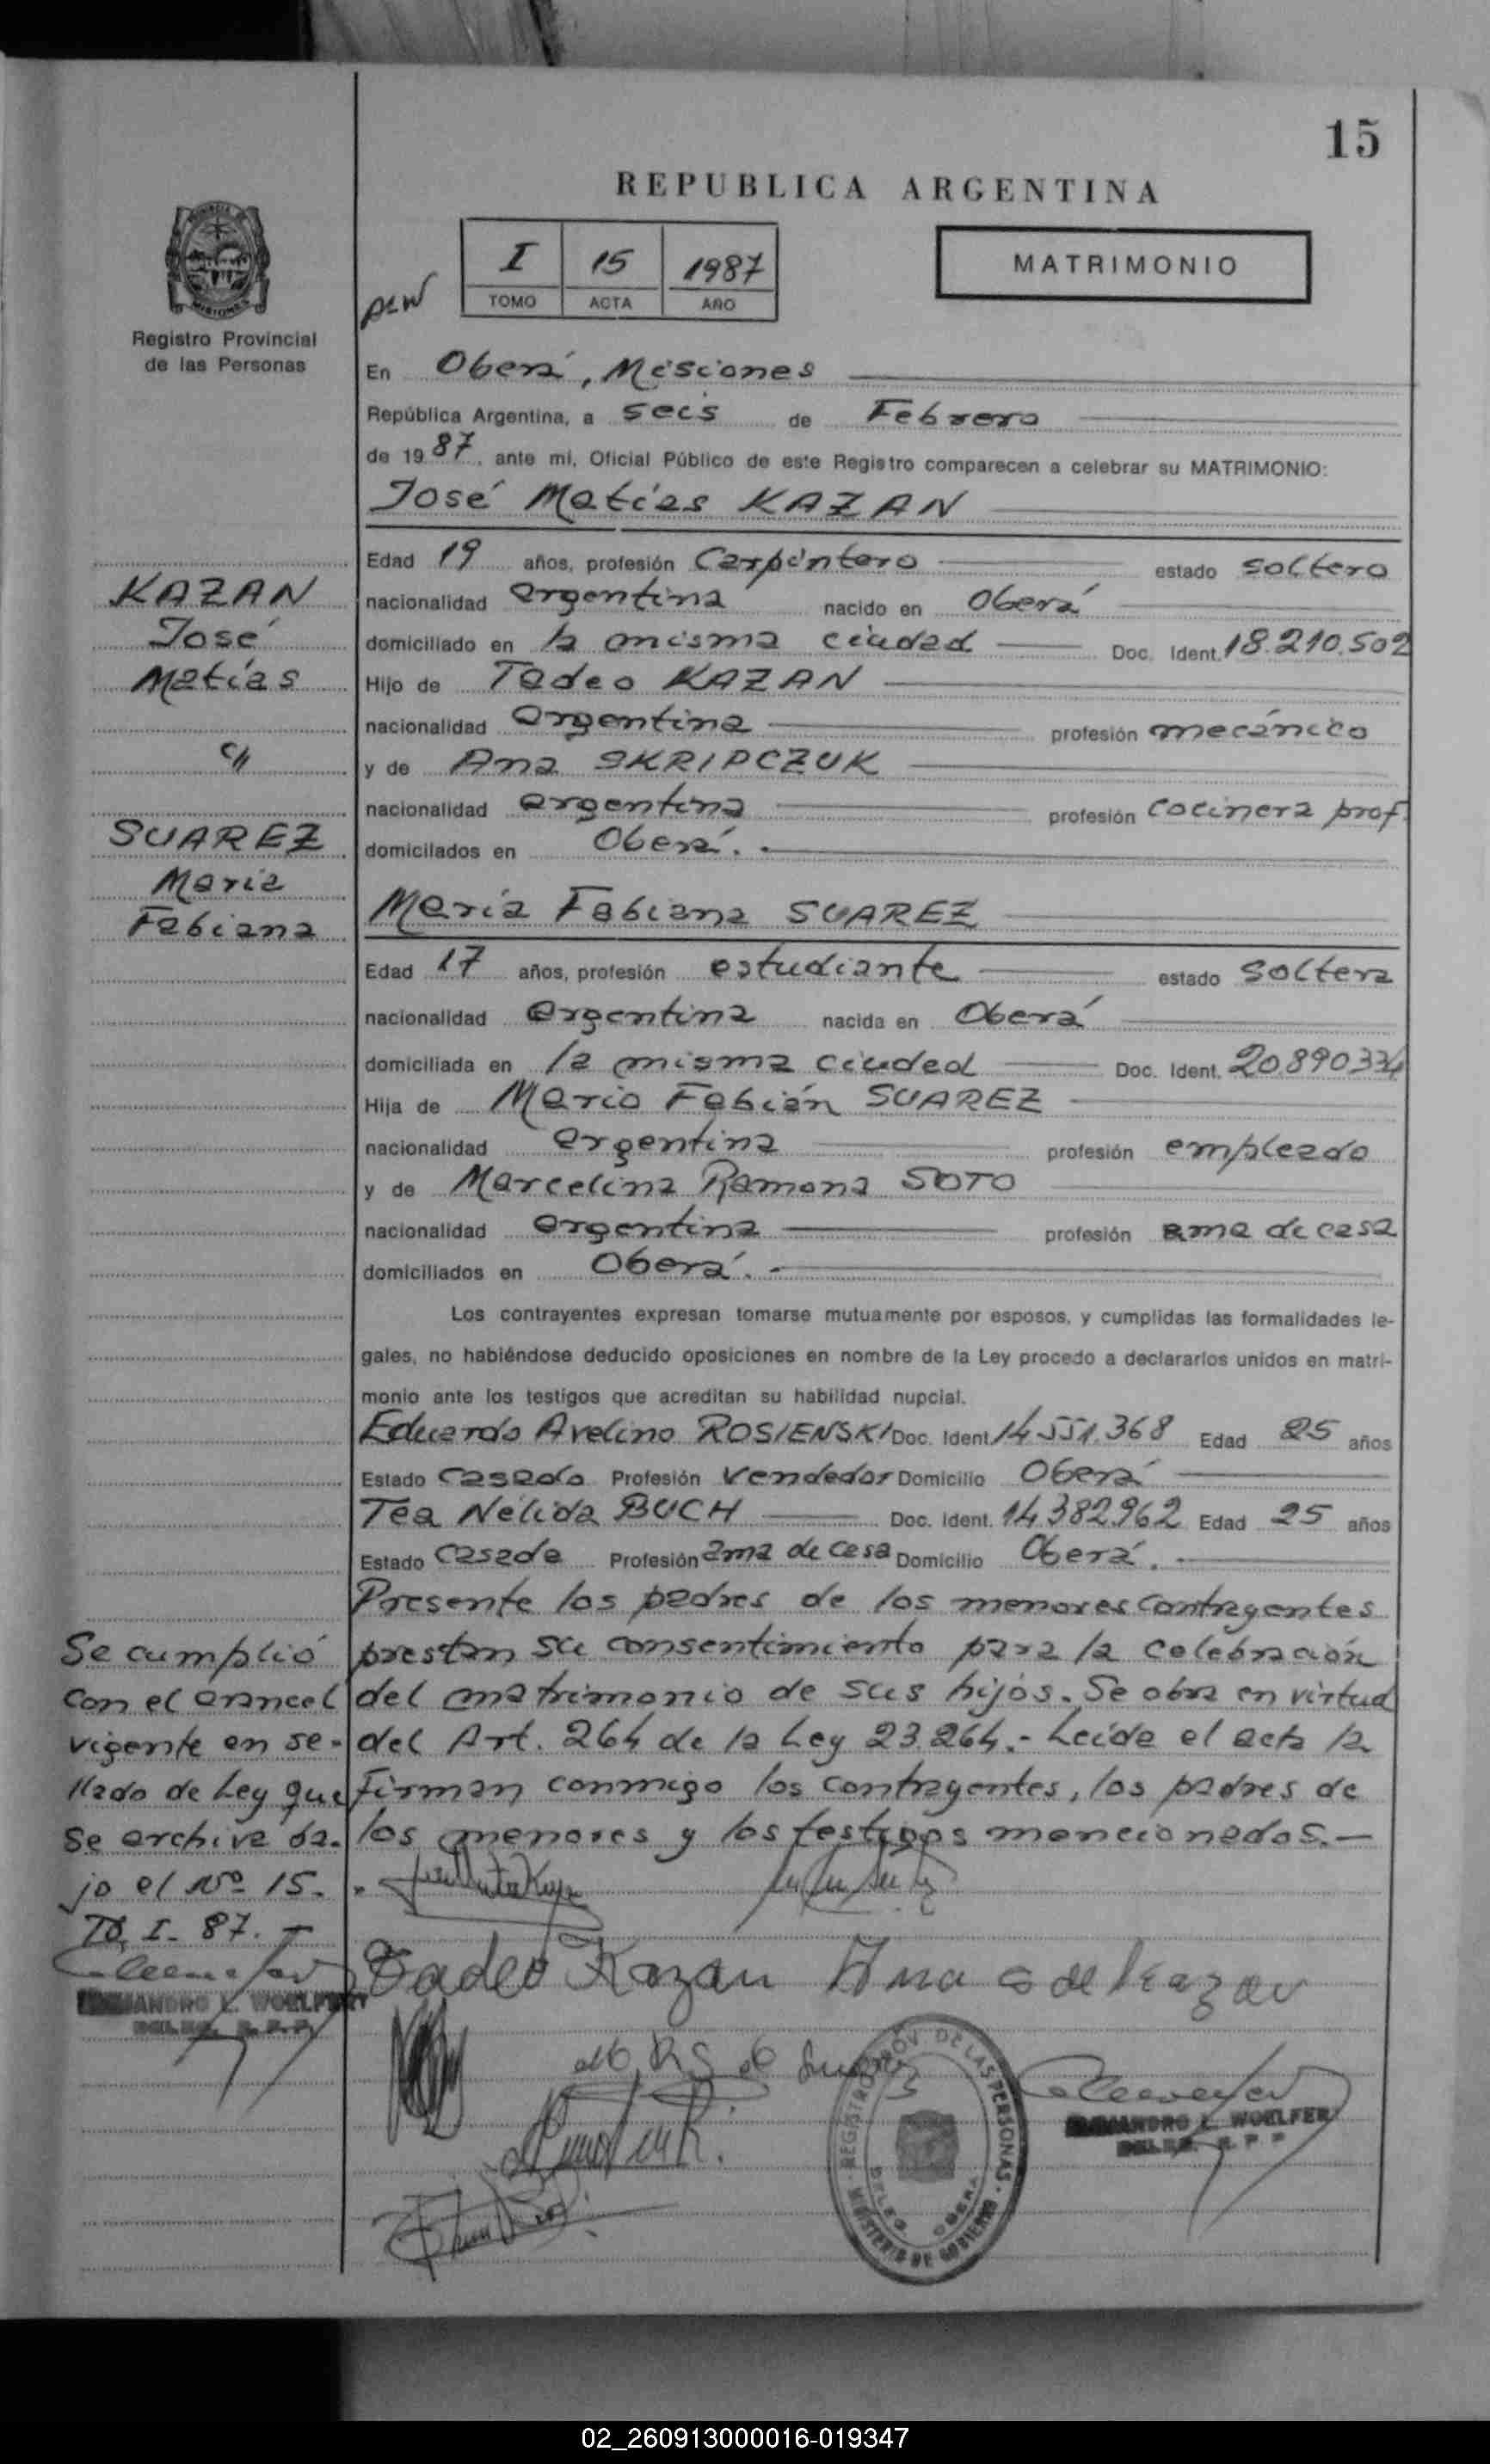 15
REPUBLICA ARGENTINA
I 15 1987
TOMO ACTA AÑO
MATRIMONIO
Registro Provincial
de las Personas
En Oberá, Misiones
República Argentina, a seis de Febrero
de 1987, ante mi, Oficial Público de este Registro comparecen a celebrar su MATRIMONIO:
José Matías KAZAN
Edad 19 años, profesión Carpintero estado soltero
KAZAN
José
Matías
c/
SUAREZ
María
Fabiana
nacionalidad argentina nacido en Oberá
domiciliado en la misma ciudad Doc. Ident. 18.210.502
Hijo de Tadeo KAZAN
nacionalidad argentina profesión mecánico
y de Ana SKRIPCZUK
nacionalidad argentina profesión cocinera prof.
domicilados en Oberá.
María Fabiana SUAREZ
Edad 17 años, profesión estudiante estado soltera
nacionalidad argentina nacida en Oberá
domiciliada en la misma ciudad Doc. Ident. 20.890.334
Hija de Mario Fabián SUAREZ
nacionalidad argentina profesión empleado
y de Marcelina Ramona SOTO
nacionalidad argentina profesión ama de casa
domiciliados en Oberá.
Los contrayentes expresan tomarse mutuamente por esposos, y cumplidas las formalidades le-
gales, no habiéndose deducido oposiciones en nombre de la Ley procedo a declararlos unidos en matri-
monio ante los testigos que acreditan su habilidad nupcial.
Eduardo Avelino ROSIENSKI Doc. Ident. 14.551.368 Edad 25 años
Estado casado Profesión Vendedor Domicilio Oberá
Tea Nélida BUCH Doc. Ident. 14.382.962 Edad 25 años
Estado casada Profesión ama de casa Domicilio Oberá.
Presente los padres de los menores contrayentes
prestan su consentimiento para la celebración
del matrimonio de sus hijos. Se obra en virtud
del Art. 264 de la Ley 23.264.- Leída el acta la
firman conmigo los contrayentes, los padres de
los menores y los testigos mencionados.-
Se cumplió
con el arancel
vigente en se-
llado de Ley que
se archiva ba-
jo el Nº 15.
Tº. I- 87.-
Tadeo Kazan Ana S de Kazan
WOELFERT
WOELFER
REGISTRO PROV. DE LAS PERSONAS
DELEG. OBERA
MINISTERIO DE GOBIERNO
02_260913000016-019347